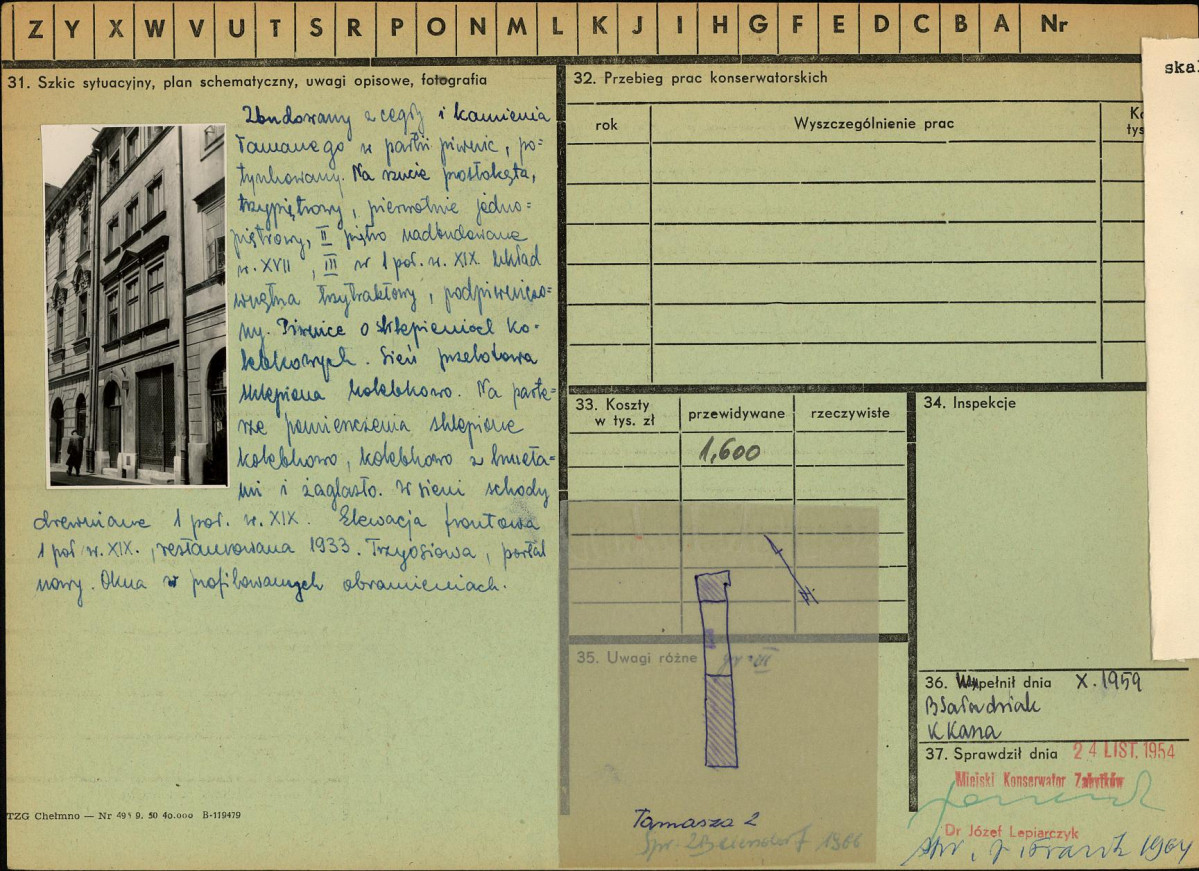 Z Y X W V U T S R P O N M L K J I H G F E D C B A Nr
31. Szkic sytuacyjny, plan schematyczny, uwagi opisowe, fotografia
Zbudowany z cegły i kamienia
łamanego w partii piwnic, po=
tynkowany. Na rzucie prostokąta,
trzypiętrowy, pierwotnie jedno=
piętrowy, II piętro nadbudowane
w. XVII, III w 1 poł. w. XIX. Układ
wnętrza trzytraktowy, podpiwniczo=
ny. Piwnice o sklepieniach ko-
lebkowych. Sień przelotowa
sklepiona kolebkowo. Na parte-
rze pomieszczenia sklepione
kolebkowo, kolebkowo z luneta-
mi i żaglasto. W sieni schody
drewniane 1 poł. w. XIX. Elewacja frontowa
1 poł w. XIX., restaurowana 1933. Trzyosiowa, portal
nowy. Okna w profilowanych obramieniach.
TZG Chełmno — Nr 495 9. 50 40.000 B-119479
32. Przebieg prac konserwatorskich
rok Wyszczególnienie prac
tys
skal
33. Koszty
w tys. zł
przewidywane rzeczywiste
1,600
34. Inspekcje
35. Uwagi różne
Tomasza 2
1966
36. Wypełnił dnia X. 1959
K Kasia
37. Sprawdził dnia 24 LIST. 1954
Miejski Konserwator Zabytków
Dr Józef Lepiarczyk
1964